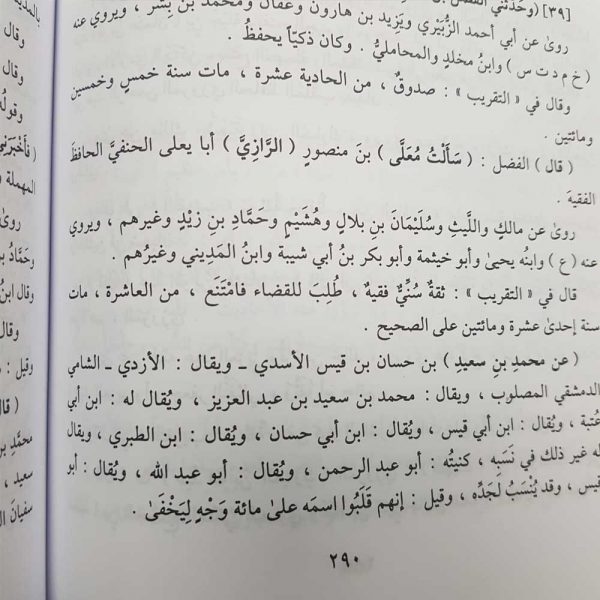 [٣٩] (وحدثني الفضل بن
روى عن أبي أحمد الزُّبَيْري ويَزِيد بن هارون وعفان ومحمد بن بِشْر ، ويروي عنه
( خ م د ت س ) وابنُ مخلدٍ والمحامليُّ . وكان ذكيّاً يحفظُ .
وقال في « التقريب » : صدوقٌ ، من الحادية عشرة ، مات سنة خمسٍ وخمسين
ومائتين .
( قال ) الفضل : ( سَأَلْتُ مُعَلَّى ) بنَ منصورٍ ( الرَّازِيَّ ) أبا يعلى الحنفيَّ الحافظَ
الفقيهَ .
روىٰ عن مالكٍ والليثِ وسُلَيْمَانَ بنِ بلالٍ وهُشَيْمٍ وحَمَّادِ بنِ زيْدٍ وغيرهم ، ويروي
عنه ( ع ) وابنُه يحيىٰ وأبو خيثمة وأبو بكر بنُ أبي شيبة وابنُ المَدِيني وغيرُهم .
قال في « التقريب » : ثقةٌ سُنِّيٌّ فقيهٌ ، طُلِبَ للقضاء فامْتَنَع ، من العاشرة ، مات
سنة إحدىٰ عشرة ومائتين على الصحيح .
( عن محمدِ بنِ سعيدٍ ) بن حسان بن قيس الأسدي ـ ويقال : الأزدي ـ الشامي
الدمشقي المصلوب ، ويقال : محمد بن سعيد بن عبد العزيز ، ويُقال له : ابن أبي
عُتبة ، ويُقال : ابن أبي قيس ، ويُقال : ابن أبي حسان ، ويُقال : ابن الطبري ، ويقال
له غير ذلك في نَسَبِه ، كنيتُه : أبو عبد الرحمن ، ويُقال : أبو عبد الله ، ويُقال : أبو
قيس ، وقد يُنْسَبُ لجَدِّه ، وقيل : إنهم قَلَبُوا اسمَه علىٰ مائة وَجْهٍ لِيَخْفَىٰ .
٢٩٠
وقال
وقال
وقولُه
( فأَخْبَرَني
المهملة
روىٰ
وحَمَّادُ بن
وقال ابنُ
وقال
وقيل :
( قال
محمَّد بن
سعيد ،
سفيان